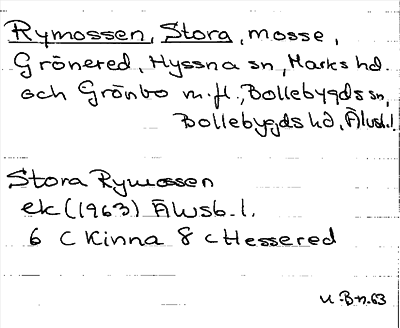 Rymossen, Stora, mosse,
Grönered, Hyssna sn, Marks hd.
och Grönbo m.fl., Bollebygds sn,
Bollebygds hd, Älvsb.l.
Stora Rymossen
ek (1963) Älvsb. l.
6 C Kinna 8 c Hessered